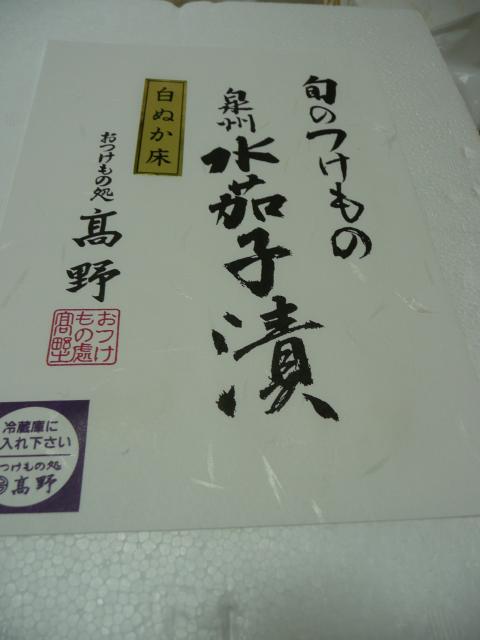 旬のつけもの
泉州
水茄子漬
白ぬか床
おつけもの処
髙野
おつけ
もの處
髙野
冷蔵庫に
入れ下さい
つけもの処
髙野